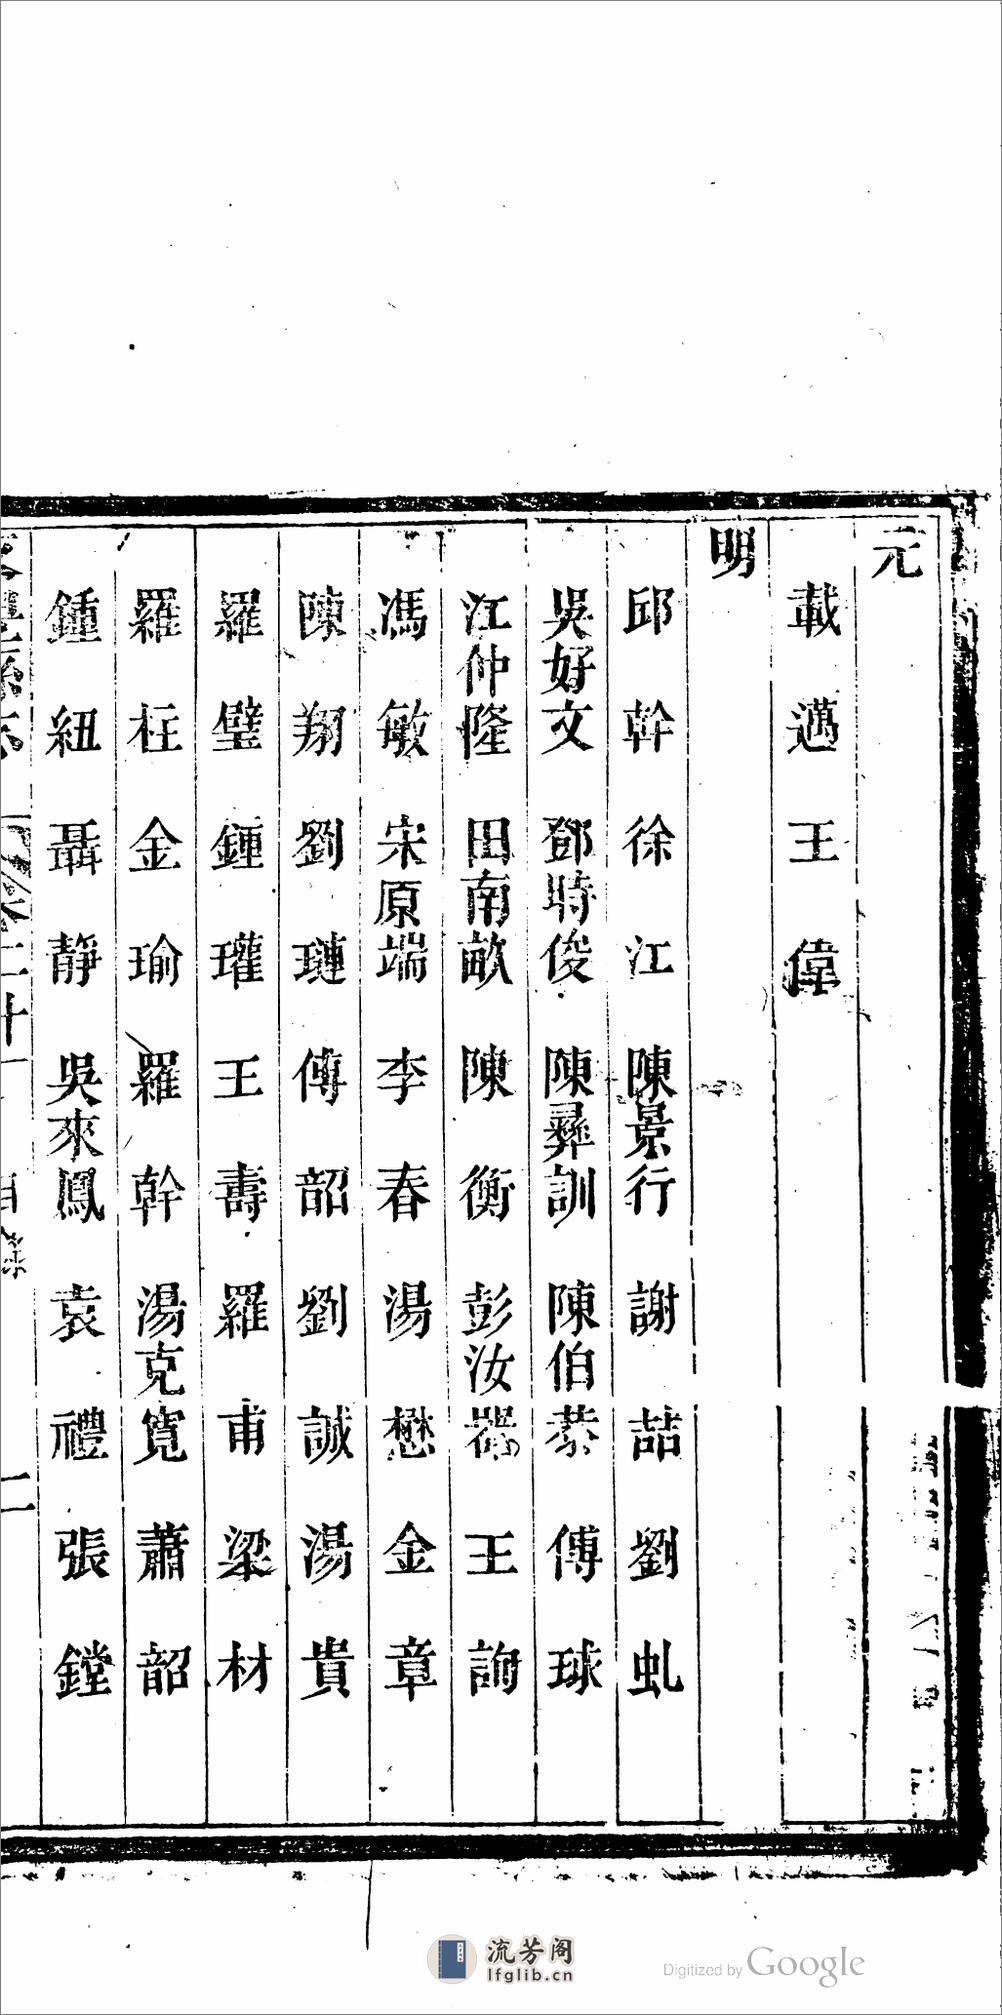 元
載邁 王偉
明
邱幹 徐江 陳景行 謝喆 劉虬
吳好文 鄧時俊 陳彝訓 陳伯恭 傅球
江仲隆 田南畝 陳衡 彭汝器 王詢
馮敏 宋原端 李春 湯懋 金章
陳翔 劉璉 傅韶 劉誠 湯貴
羅璧 鍾瓘 王壽 羅甫 梁材
羅柱 金瑜 羅幹 湯克寬 蕭韶
鍾紐 聶靜 吳來鳳 袁禮 張鏜
卷二十一 目錄 二
流芳阁
lfglib.cn
Digitized by Google